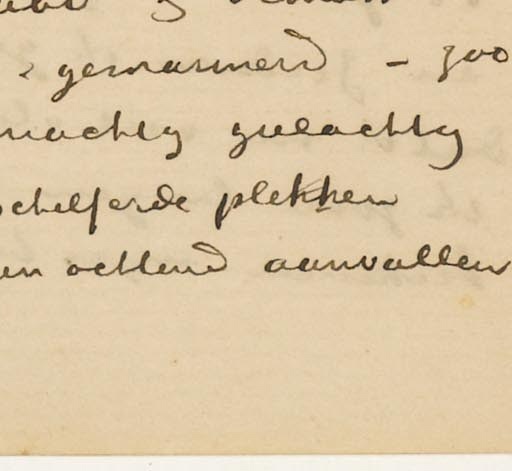 gemarmerd – zoo
machtig geelachtig
schelferde plekken
een ochtend aanvallen